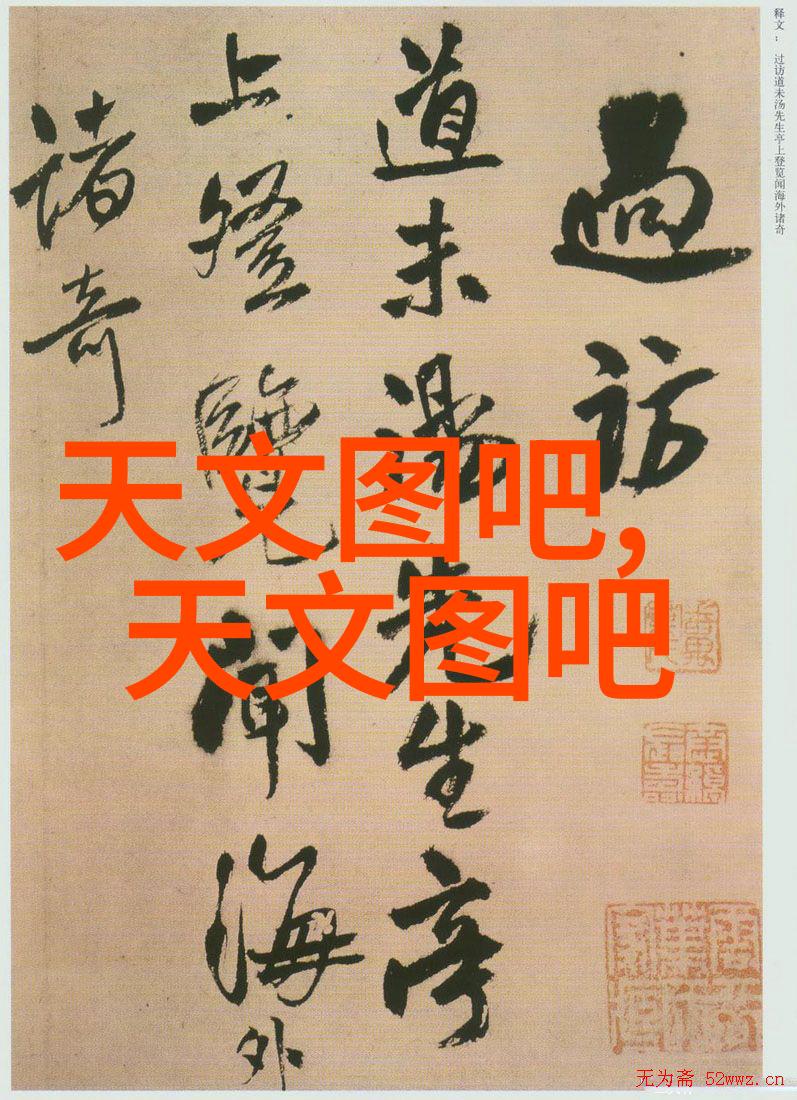 释文： 过访道未汤先生亭上登览闻海外诸奇
過訪
道未湯先生亭
上登覽聞海外
諸奇
天文图吧,
天文图吧
无为斋 52wwz.cn